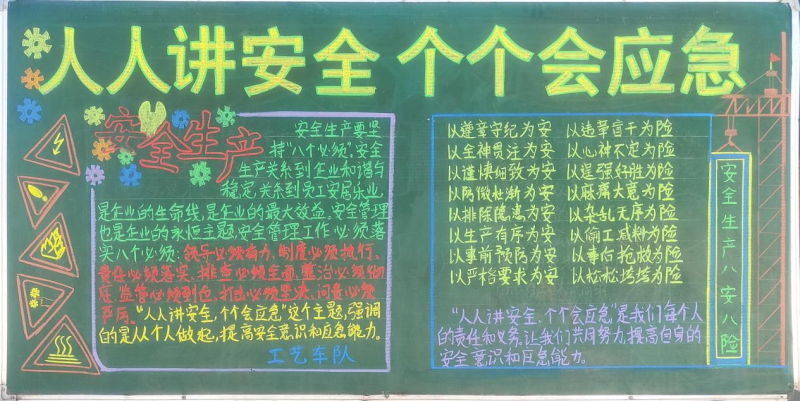 人人讲安全 个个会应急
安全生产
安全生产要坚
持“八个必须”,安全
生产关系到企业和谐与
稳定,关系到员工安居乐业,
是企业的生命线,是企业的最大效益,安全管理
也是企业的永恒主题,安全管理工作必须落
实八个必须:领导必须有力,制度必须执行,
责任必须落实,排查必须全面,整治必须彻
底,监管必须到位,打击必须坚决,问责必须
严厉。“人人讲安全,个个会应急”这个主题,强调
的是从个人做起,提高安全意识和应急能力。
工艺车队
以遵章守纪为安 以违章盲干为险
以全神贯注为安 以心神不定为险
以谨慎细致为安 以逞强好胜为险
以防微杜渐为安 以麻痹大意为险
以排除隐患为安 以杂乱无序为险
以生产有序为安 以偷工减料为险
以事前预防为安 以事后抢救为险
以严格要求为安 以松松垮垮为险
“人人讲安全,个个会应急”是我们每个人
的责任和义务。让我们共同努力,提高自身的
安全意识和应急能力。
安全生产八安八险